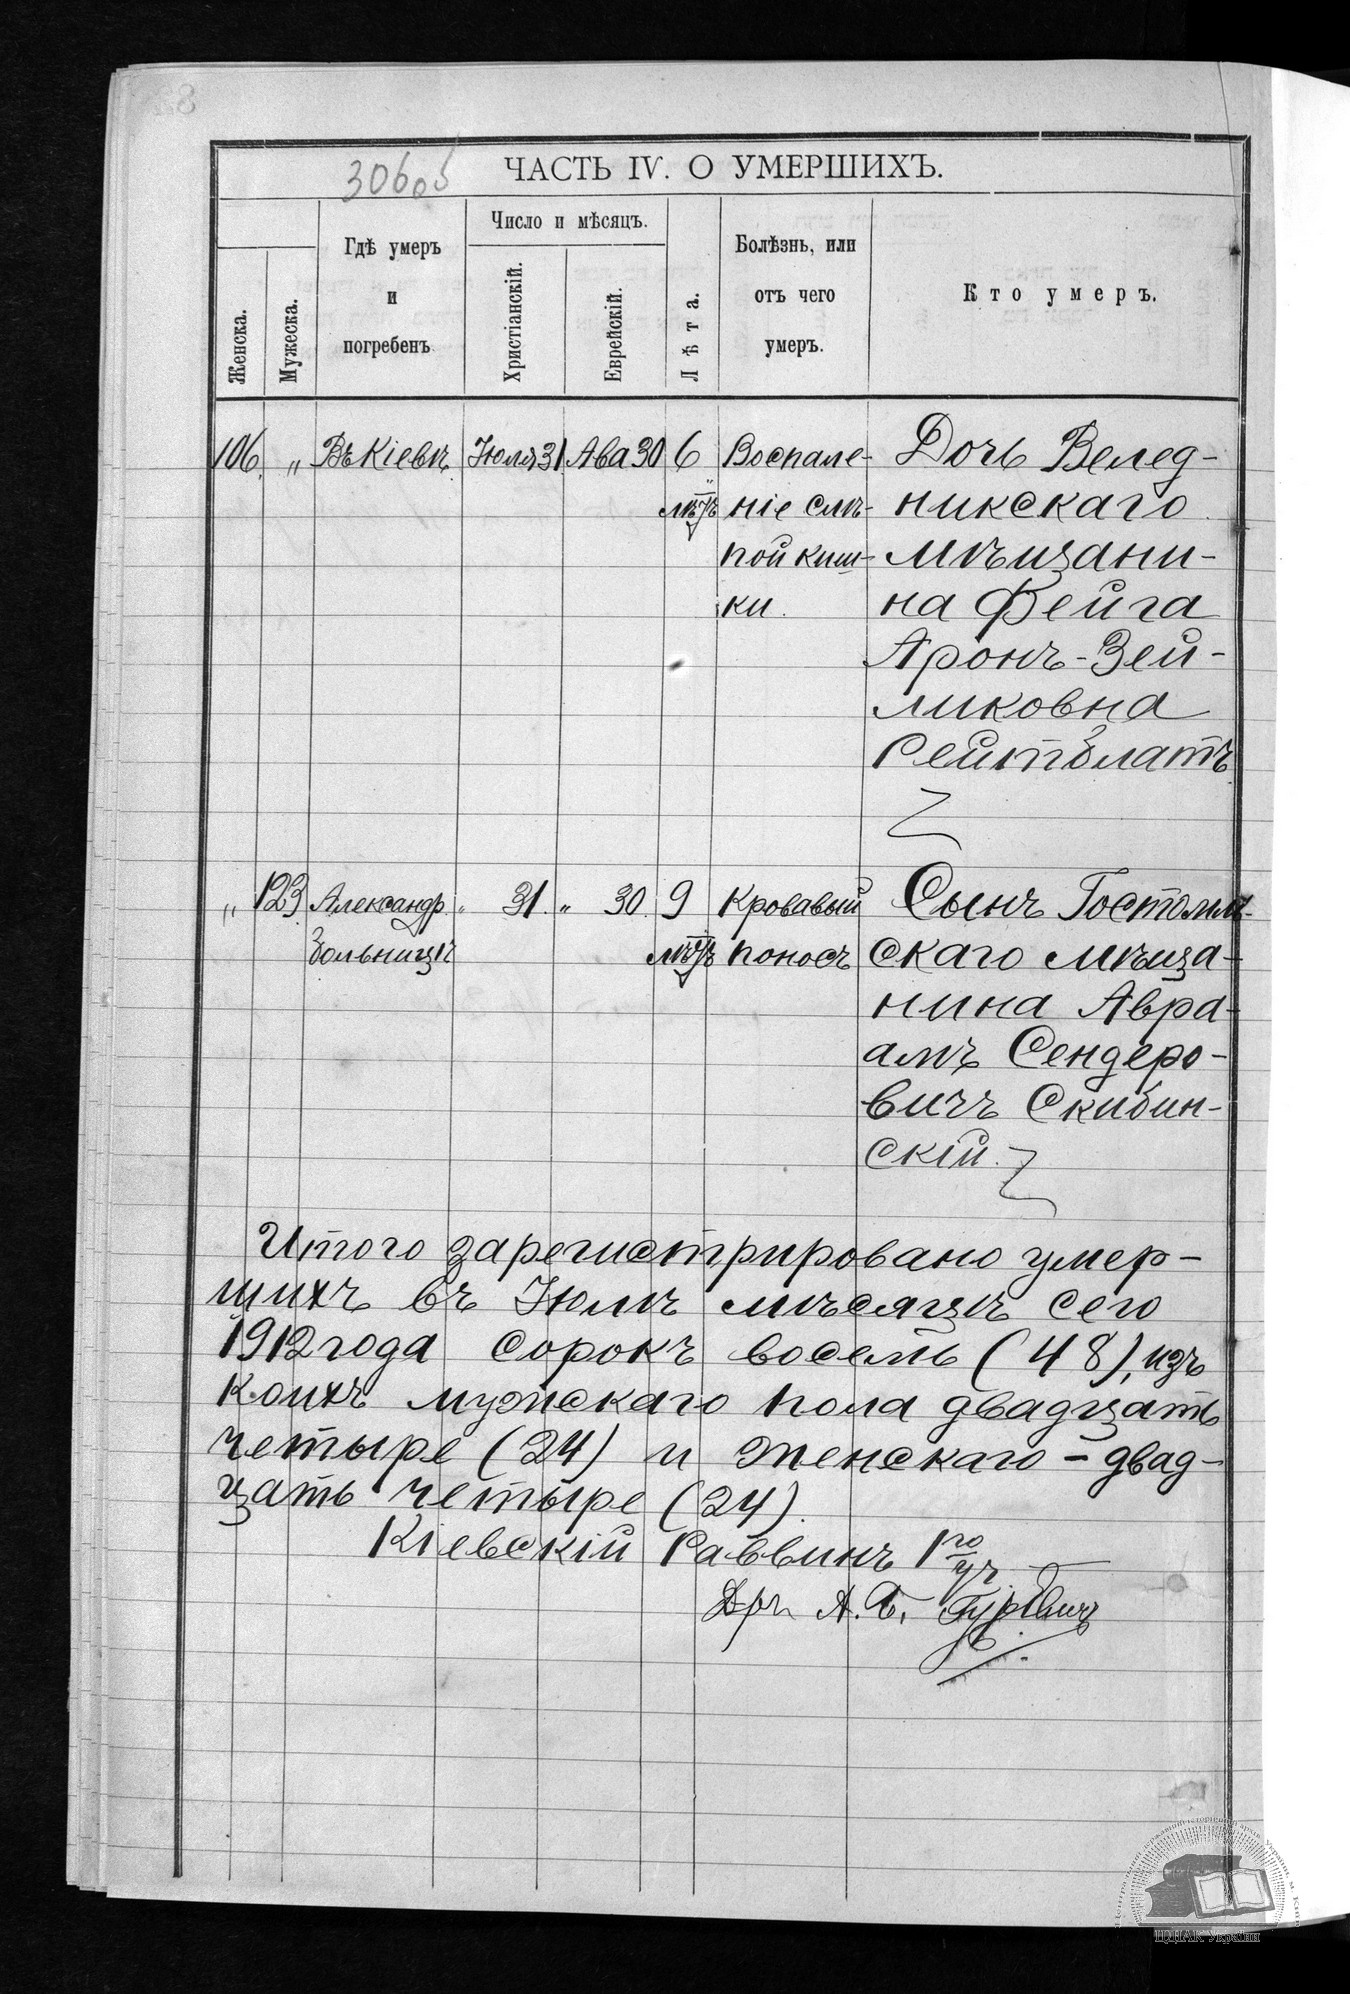 306 об
ЧАСТЬ IV. О УМЕРШИХЪ.
Женска.
Мужеска.
Гдѣ умеръ
и
погребенъ
Число и мѣсяцъ.
Христіанскій.
Еврейскій.
Лѣта.
Болѣзнь, или
отъ чего
умеръ.
Кто умеръ.
106 „ Въ Кіевѣ Іюля 31 Ава 30 6 Воспале- Дочь Велед-
лѣтъ ніе слѣ- никскаго
пой киш- мѣщани-
ки. на Фейга
Аронъ-Зей-
ликовна
Рейтблатъ
„ 123 Александр. „ 31. „ 30. 9 Кровавый Сынъ Гостомль-
больницѣ лѣтъ поносъ скаго мѣща-
нина Авра-
амъ Сендеро-
вичъ Скибин-
скій.
Итого зарегистрировано умер-
шихъ въ Іюлѣ мѣсяцѣ сего
1912 года сорокъ восемь (48), изъ
коихъ мужскаго пола двадцать
четыре (24) и женскаго - двад-
цать четыре (24).
Кіевскій Раввинъ
Д-ръ А. Б. Гуревичъ
ЦДІАК України